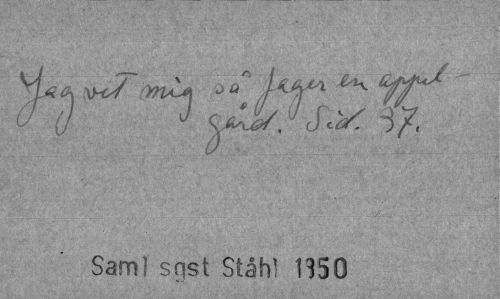 Jag vet mig så fager en appel-
gård. Sid. 37.
Saml sgst Ståhl 1950